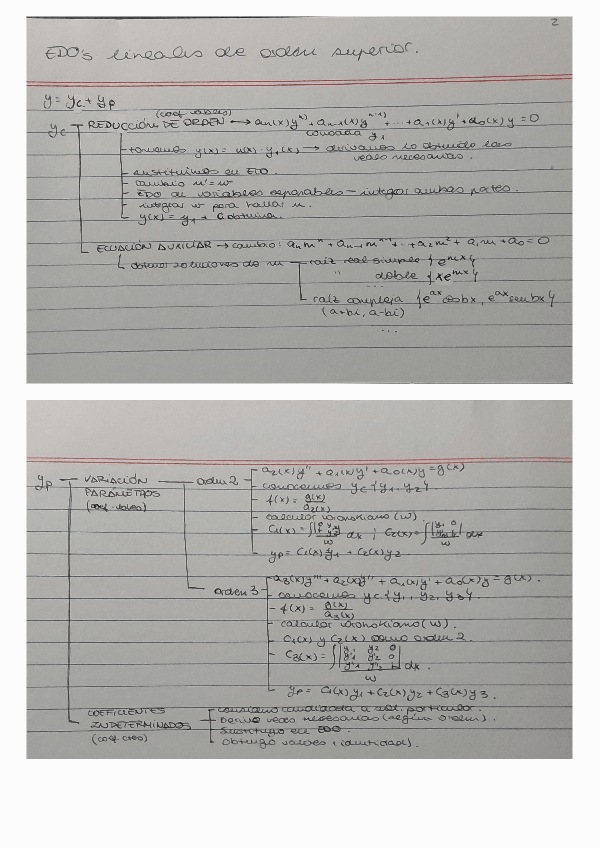 2
EDO's lineales de orden superior.
y = yc + yp
yc
REDUCCIÓN DE ORDEN (coef. variables) → an(x)y^(n) + an-1(x)y^(n-1) + ... + a1(x)y' + a0(x)y = 0
conocada y1
tomamos y(x) = u(x) · y1(x) → derivamos lo obtenido las
veces necesarias.
sustituimos en EDO.
cambio u' = w
EDO de variables separables - integrar ambas partes.
integrar w para hallar u.
y(x) = y1 +
ECUACIÓN AUXILIAR → cambio: an m^n + an-1 m^n-1 + ... + a2 m² + a1 m + a0 = 0
obtener soluciones de m
raíz real simple {e^mx}
" doble {xe^mx}
...
raíz compleja {e^ax cosbx, e^ax senbx}
(a+bi, a-bi)
...
yp
VARIACIÓN
PARÁMETROS
orden 2
a2(x)y'' + a1(x)y' + a0(x)y = g(x)
conocemos yc {y1, y2}
f(x) = g(x)/a2(x)
calcular wronskiano (w).
C1(x) = ∫ dx ; C2(x) = ∫ dx
w
yp = C1(x)y1 + C2(x)y2
orden 3
a3(x)y''' + a2(x)y'' + a1(x)y' + a0(x)y = g(x).
conocemos yc {y1, y2, y3}.
f(x) = g(x)/a3(x)
calcular wronskiano (w).
C1(x) y C2(x) como orden 2.
C3(x) = ∫ |y1 y2 0
y'1 y'2 0
y''1 y''2 | dx.
w
yp = C1(x)y1 + C2(x)y2 + C3(x)y3.
COEFICIENTES
INDETERMINADOS
candidata a sol. particular.
Derivo veces necesarias (según orden).
Sustituyo en EDO.
Obtengo valores (identidad).